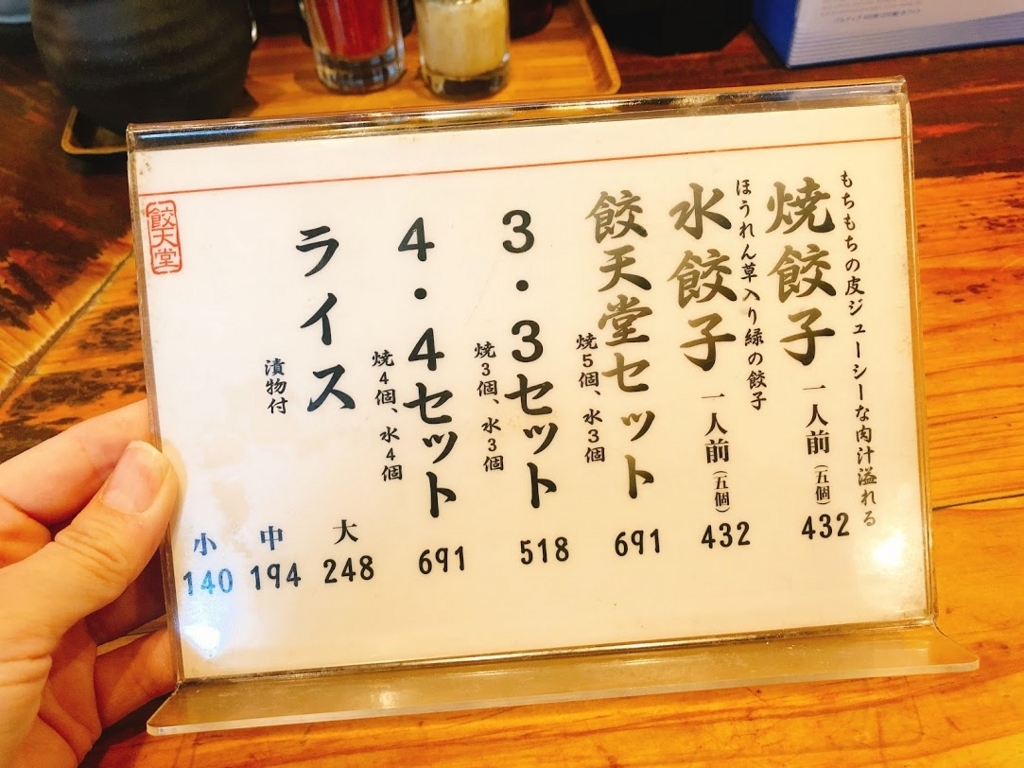 もちもちの皮ジューシーな肉汁溢れる
焼餃子 一人前（五個） 432
ほうれん草入り緑の餃子
水餃子 一人前（五個） 432
餃天堂セット 691
焼5個、水3個
3・3セット 518
焼3個、水3個
4・4セット 691
焼4個、水4個
ライス 大 248
漬物付 中 194
小 140
餃天堂